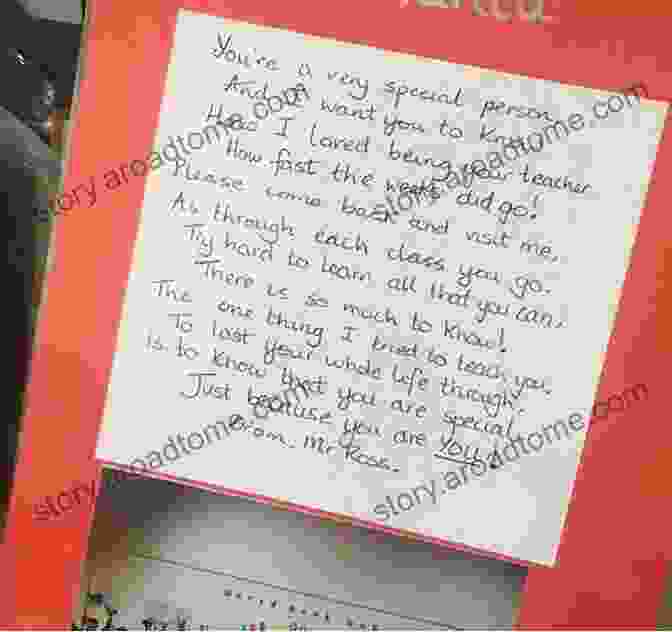 You're a very special person
And I want you to know
How I loved being your teacher
How fast the weeks did go!
Please come back and visit me,
As through each class you go.
Try hard to learn all that you can,
There is so much to know!
The one thing I tried to teach you,
To last your whole life through,
Is to know that you are special
Just because you are YOU!
From. Mr Ross.
World Book
story.aroadtome.com
story.aroadtome.com
story.aroadtome.com
story.aroadtome.com